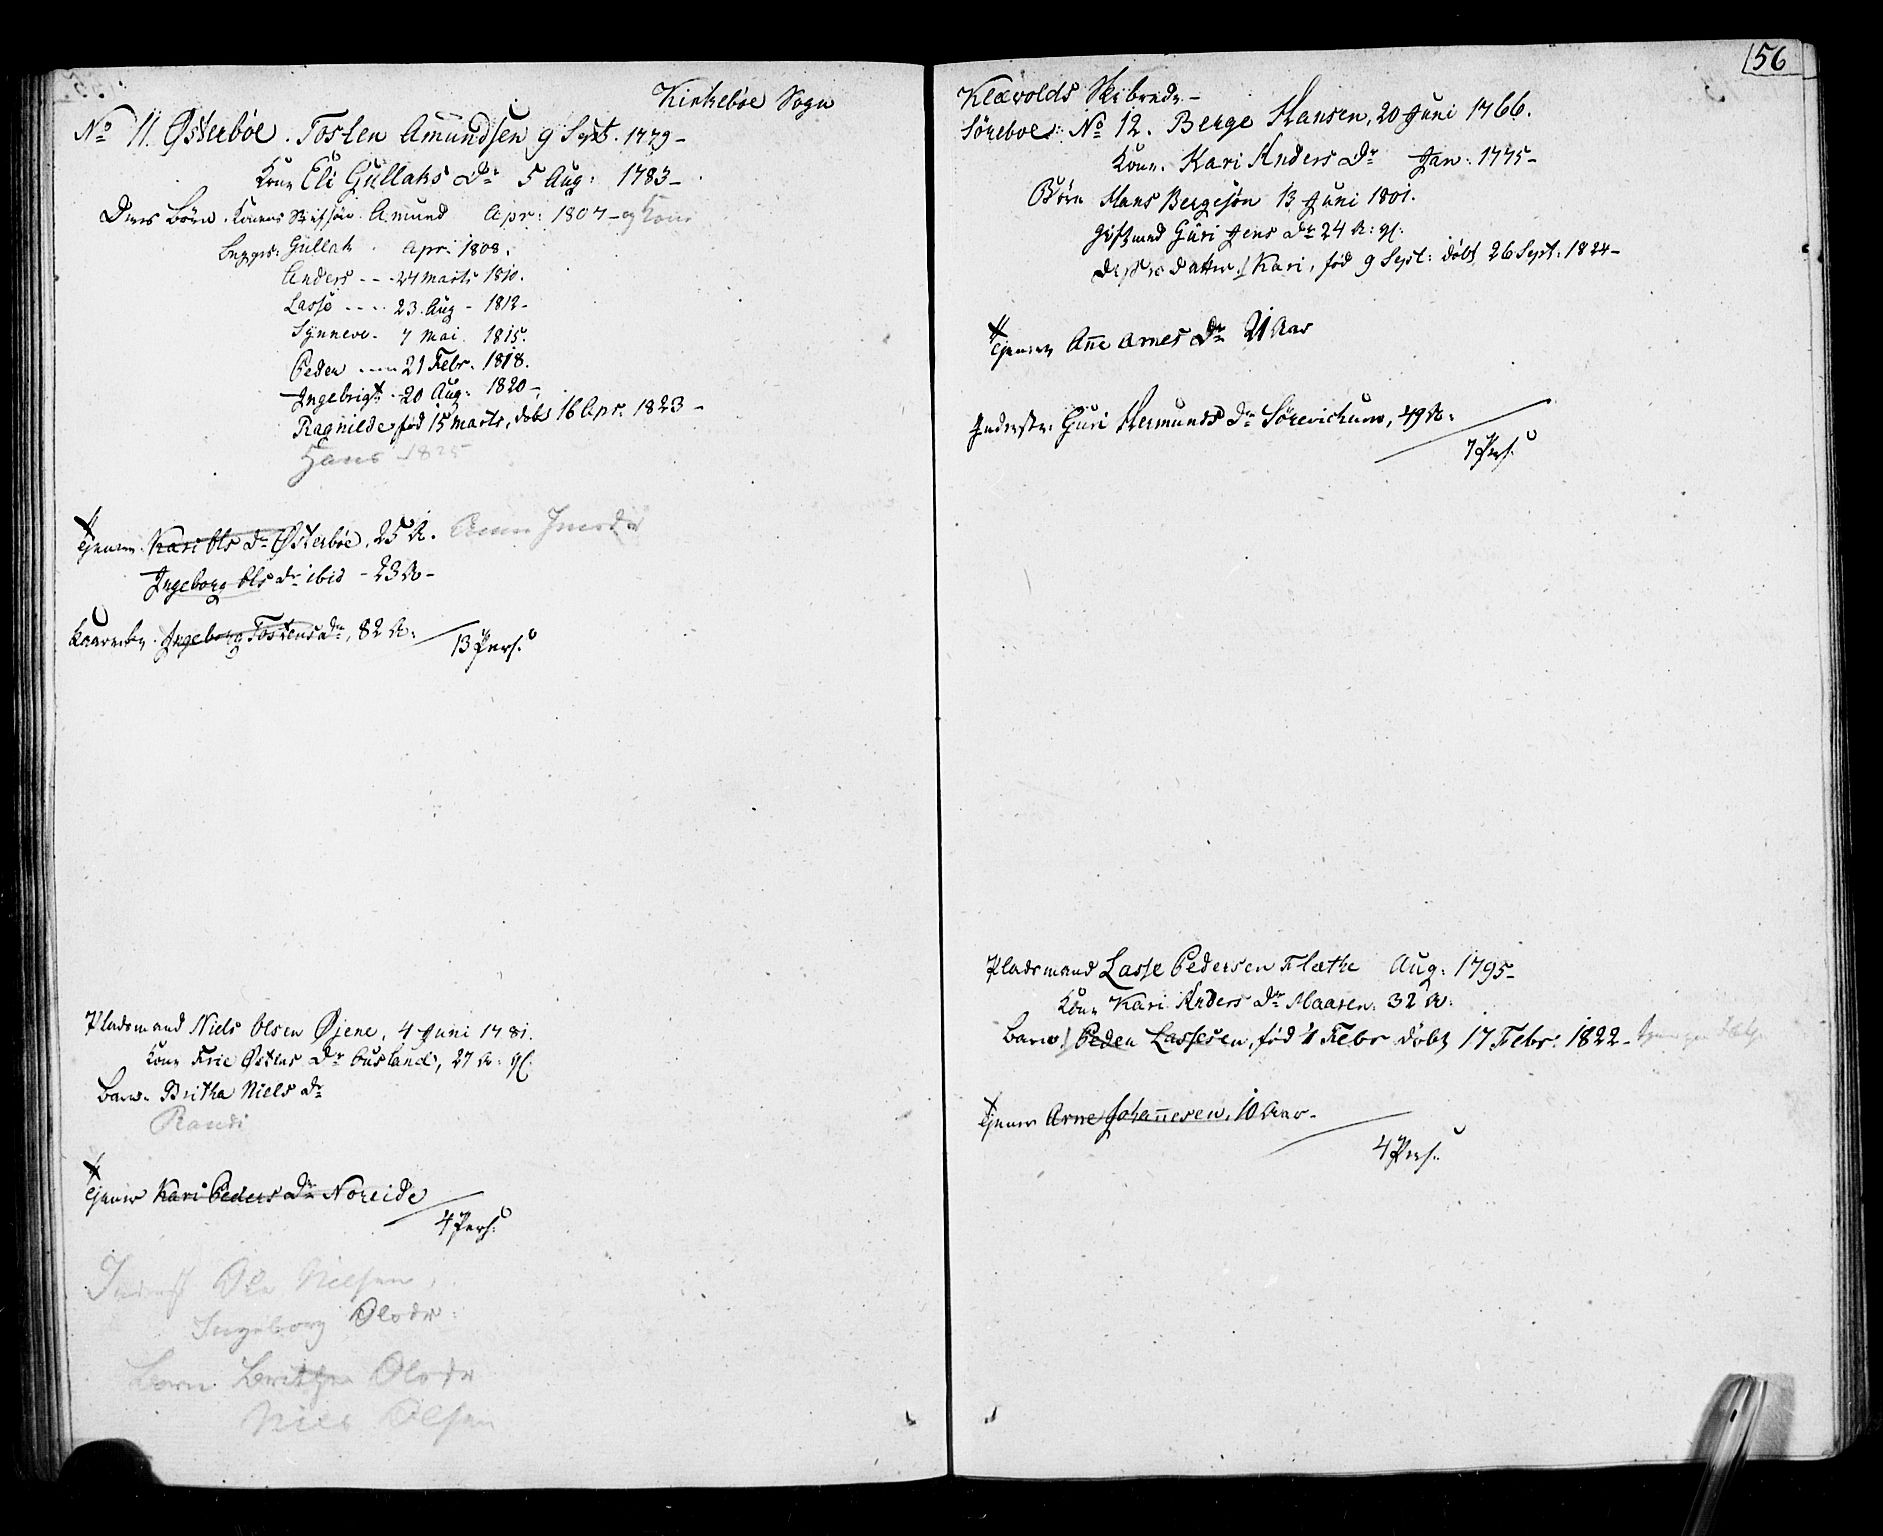 Kirkebøe Sogn
No 11. Østerbøe. Tosten Amundsen 9 Sept. 1779-
Kone Eli Gullaks Dr 5 Aug: 1783-
Deres Børn. Konens Amund Apr: 1807- og Kone
Begges: Gullak Apr. 1808.
Anders - - 24 Marts 1810.
Lasse - - - 23. Aug - 1812-
Synneve. 7 Mai. 1815.
Peder - - - 21 Febr. 1818.
Ingebrigt - 20 Aug: 1820-
Ragnilde, fød 15 Marts, døbt 16 Apr. 1823-
Hans 1825
Tjenere. Kari Ols Dr Østerbøe, 25 A.
Ingeborg Ols Dr ibid - 23 A-
Ingeborg Tostens Dr, 82 A:
13 Pers.
Pladsmand Niels Olsen Øjene, 4 Juni 1781.
Kone Østens Dr Ousland, 27 A: gl.
Barn. Britha Niels Dr
Randi
Tjener Kari Peders Dr Noreide
4 Pers:
Inderst Ole Nielsen,
Ingeborg Olsdr:
Børn Brithe Olsdr
Niels Olsen
56
Klævolds Skibrede-
Søreboe: No 12. Berge Hansen, 20 Juni 1766.
Kone. Kari Anders Dr Jan: 1775-
Børn Hans Bergesøn 13 Juni 1801.
gift med Guri Jens Dr 24 A: gl:
Datter: Kari, fød 9 Sept: døbt 26 Sept: 1824-
Tjener Anne Arnes Dr 21 Aar
Inderste: Guri Hermunds Dr 49 A:
7 Pers.
Pladsmand Lasse Pedersen Flæthe Aug: 1795-
Kone Kari Anders Dr Maaren: 32 A:
Barn Peder Lassesen, fød 1 Febr døbt 17 Febr: 1822-
Tjener Arne Johannesen, 10 Aar-
4 Pers.